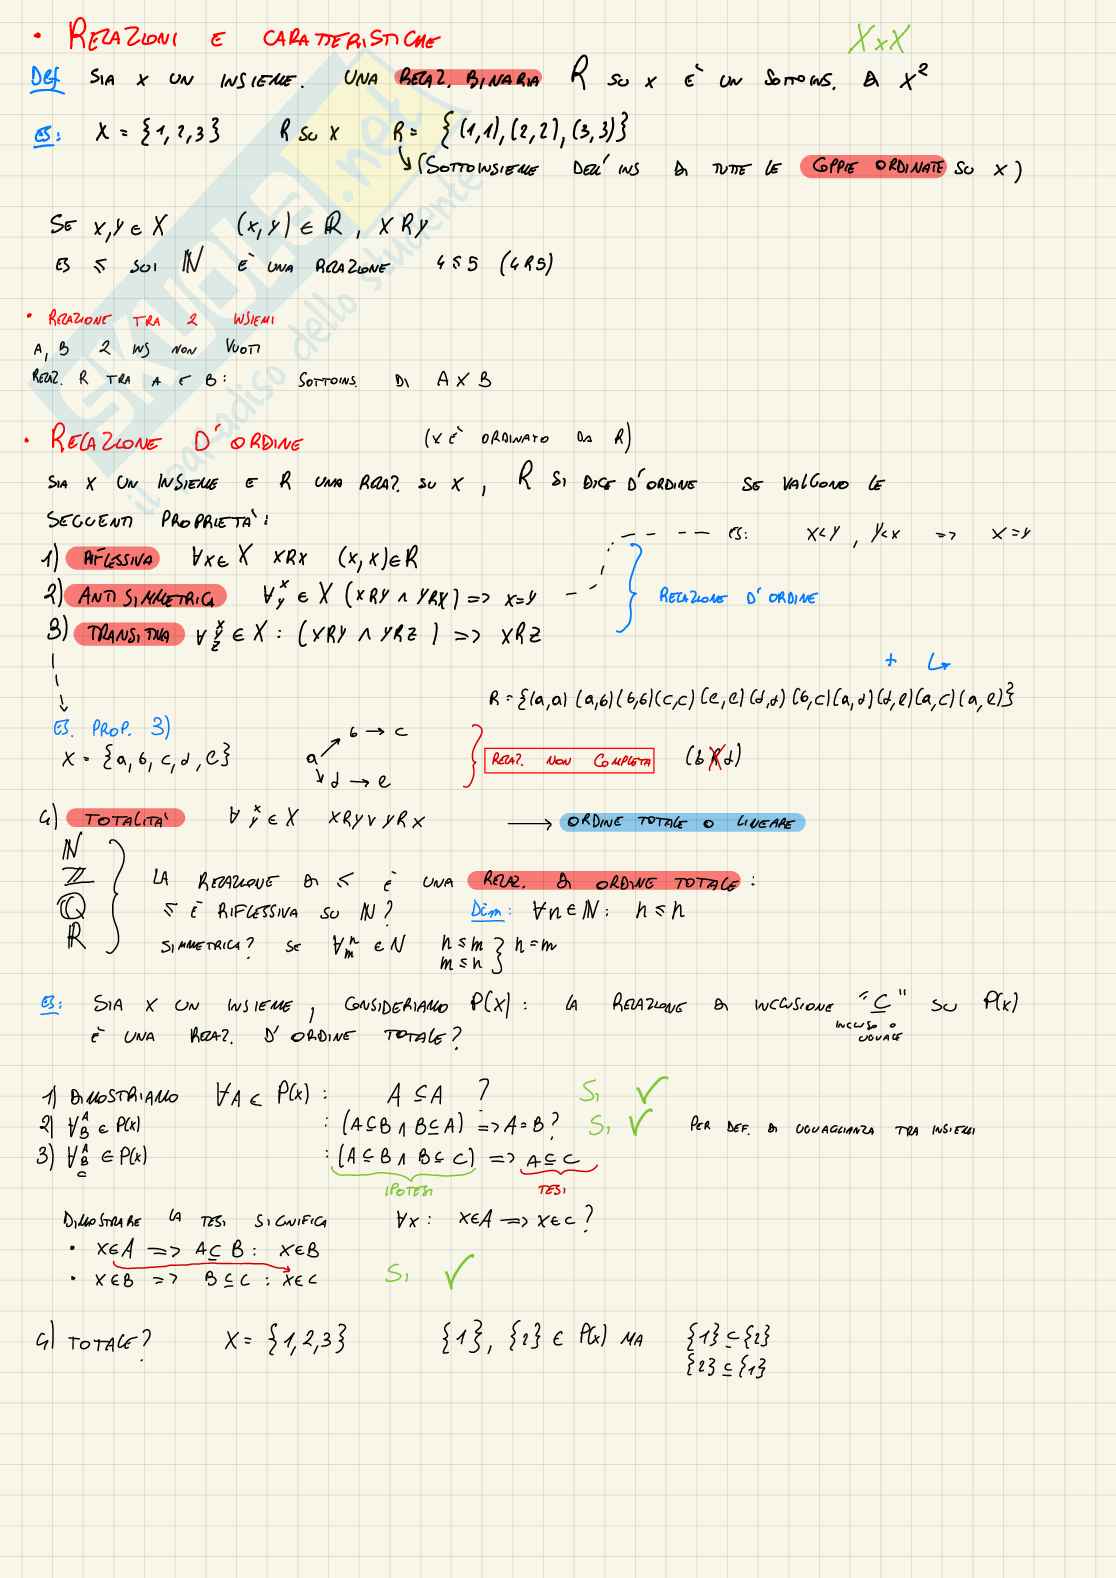 • RELAZIONI E CARATTERISTICHE
X x X
Def SIA X UN INSIEME. UNA RELAZ. BINARIA R SU X È UN SOTTOINS. DI X²
ES: X = {1,2,3} R SU X R = {(1,1),(2,2),(3,3)}
↳ (SOTTOINSIEME DELL'INS DI TUTTE LE COPPIE ORDINATE SU X)
SE x,y ∈ X (x,y) ∈ R , X R y
ES ≤ SUI ℕ È UNA RELAZIONE 4 ≤ 5 (4 R 5)
• RELAZIONE TRA 2 INSIEMI
A, B 2 INS NON VUOTI
RELAZ. R TRA A E B: SOTTOINS. DI A X B
• RELAZIONE D'ORDINE (X È ORDINATO DA R)
SIA X UN INSIEME E R UNA RELAZ. SU X , R SI DICE D'ORDINE SE VALGONO LE
SEGUENTI PROPRIETÀ:
ES: X<Y , Y<X => X=Y
1) RIFLESSIVA ∀x∈X XRX (x,x)∈R
2) ANTISIMMETRICA ∀x y ∈ X (XRY ∧ YRX) => X=Y
RELAZIONE D'ORDINE
3) TRANSITIVA ∀x y z ∈ X : (XRY ∧ YRZ) => XRZ
+ ↳
R = {(a,a) (a,b) (b,b) (c,c) (e,e) (d,d) (b,c) (a,d) (d,e) (a,c) (a,e)}
ES. PROP. 3)
X = {a,b,c,d,e}
a b → c
d → e
RELAZ. NON COMPLETA (b R d)
4) TOTALITÀ ∀x y ∈ X XRY ∨ YRX → ORDINE TOTALE O LINEARE
ℕ
ℤ
ℚ
ℝ
LA RELAZIONE DI ≤ È UNA RELAZ. DI ORDINE TOTALE:
≤ È RIFLESSIVA SU ℕ? Dim: ∀n∈ℕ: n ≤ n
SIMMETRICA? SE ∀n m ∈ N n ≤ m
m ≤ n } n = m
ES: SIA X UN INSIEME , CONSIDERIAMO P(X): LA RELAZIONE DI INCLUSIONE "⊆" SU P(X)
INCLUSO O
UGUALE
È UNA RELAZ. D'ORDINE TOTALE?
1) DIMOSTRIAMO ∀A ∈ P(x) : A ⊆ A ? Sì ✓
2) ∀A B ∈ P(x) : (A⊆B ∧ B⊆A) => A=B? Sì ✓ PER DEF. DI UGUAGLIANZA TRA INSIEMI
3) ∀A B C ∈ P(x) : (A⊆B ∧ B⊆C) => A⊆C
IPOTESI TESI
DIMOSTRARE LA TESI SIGNIFICA ∀x: X∈A => X∈C?
• X∈A => A⊆B: X∈B
• X∈B => B⊆C: X∈C Sì ✓
4) TOTALE? X = {1,2,3} {1}, {2} ∈ P(x) MA {1}⊆{2}
{2}⊆{1}